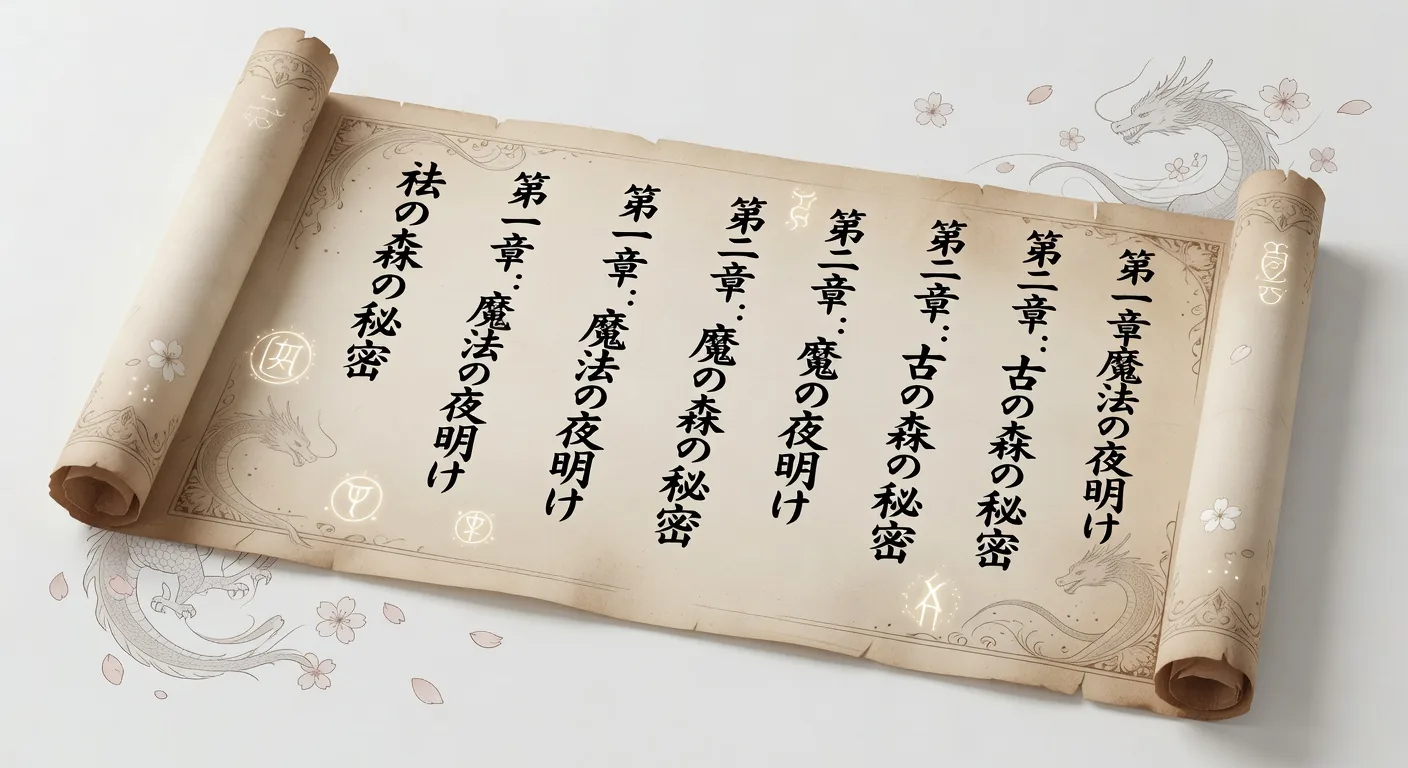 第一章魔法の夜明け
第二章：古の森の秘密
第二章：古の森の秘密
第二章：魔の夜明け
第二章：魔の森の秘密
第一章：魔法の夜明け
第一章：魔法の夜明け
祛の森の秘密